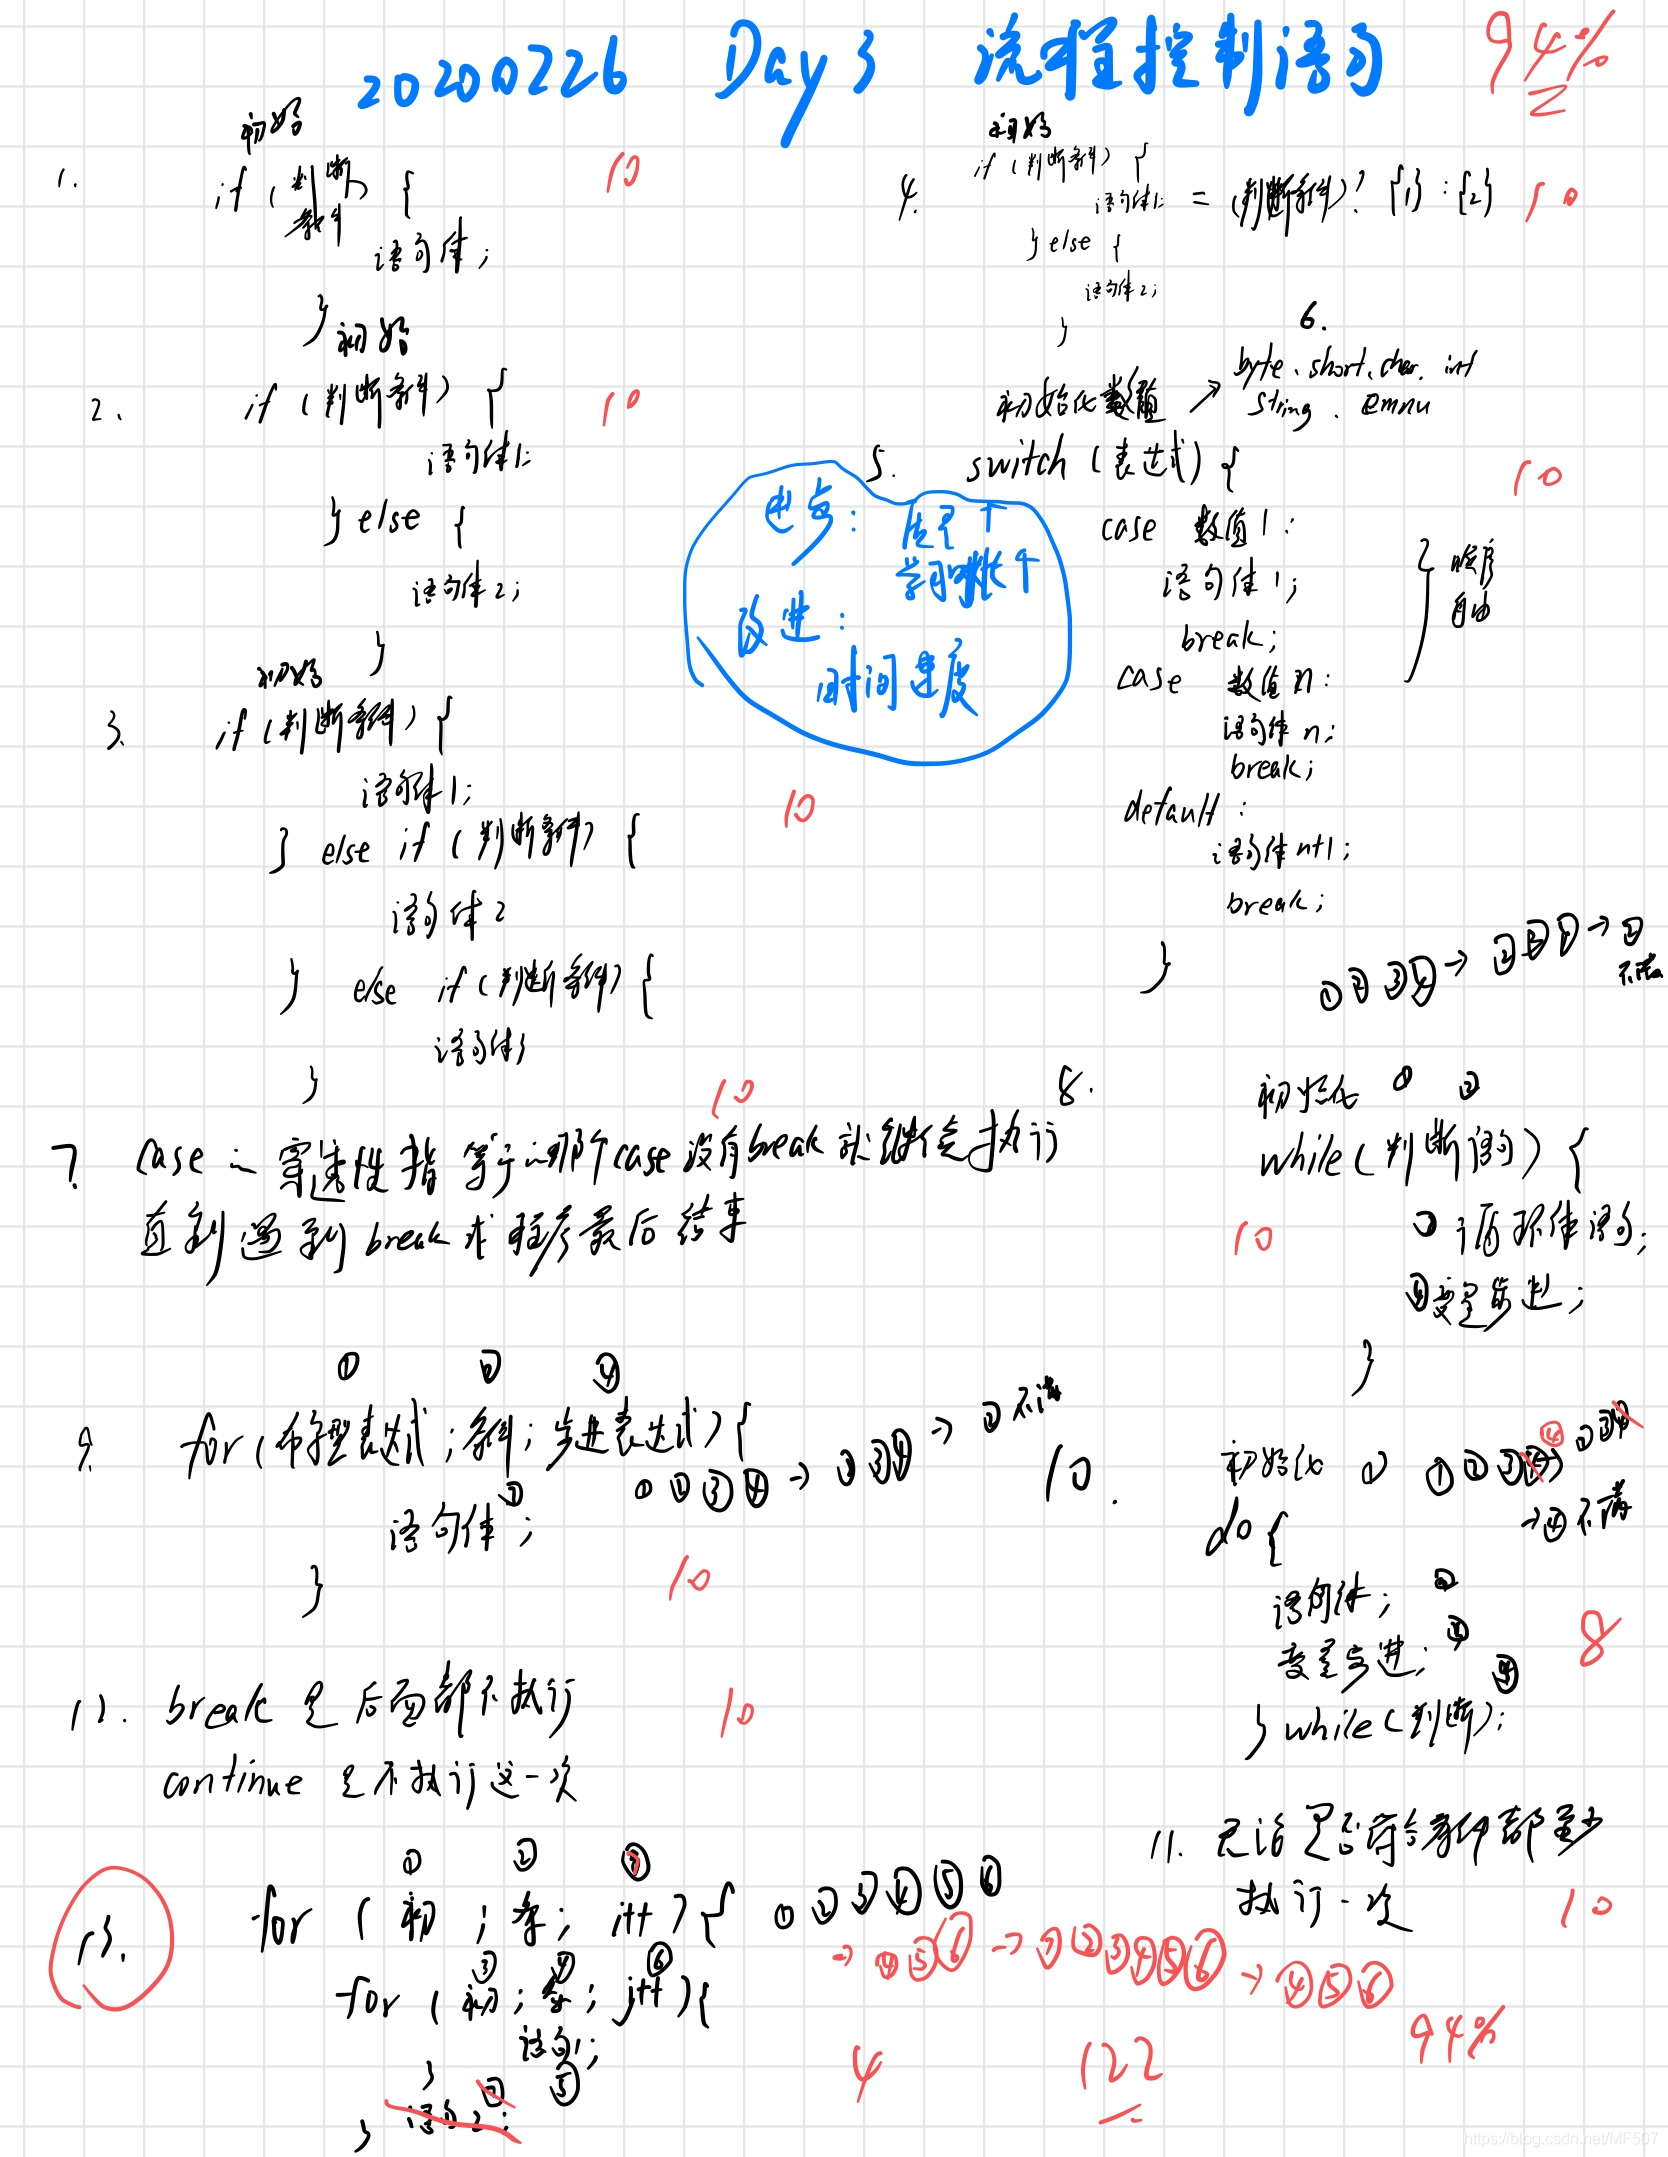 20200226 Day 3 流程控制语句 94%
1.
初始
if (判断条件) {
语句体;
}
10
2.
初始
if (判断条件) {
语句体1;
} else {
语句体2;
}
10
3.
初始
if (判断条件) {
语句体1;
} else if (判断条件) {
语句体2
} else if (判断条件) {
语句体3
}
10
4.
初始
if (判断条件) {
语句体1;
} else {
语句体2;
}
= (判断条件)? {1} : {2}
10
6.
byte、short、char、int
string、emnu
初始化数值 →
5. switch (表达式) {
case 数值1:
语句体1;
break;
case 数值n:
语句体n;
break;
default:
语句体n+1;
break;
}
} 顺序
自由
10
进步:
学习 ↑
改进:
时间速度
7. case 穿透性指等于 那个case没有break就继续执行
直到遇到break 最后结束
10
①②③④→②③④→②
不满
8.
初始化 ① ②
while (判断语句) {
③循环体语句;
④变量步进;
}
10
① ② ④
9. for (布尔型表达式;条件;步进表达式) {
语句体③;
}
①②③④→②③④→②不满
10
10.
初始化 ① ①②③④
→④不满
do {
语句体; ②
变量步进; ③
} while (判断); ④
8
12. break 是后面都不执行
continue 是不执行这一次
10
11. 无论是否符合条件都至少
执行一次
10
13.
① ② ⑦
for (初;条;i++) {
③ ④ ⑥
for (初;条;j++) {
语句1;
⑤
}
语句2;
}
①②③④⑤⑥
→④⑤⑥→⑦②③④⑤⑥→④⑤⑥
4
122
94%
https://blog.csdn.net/MF507